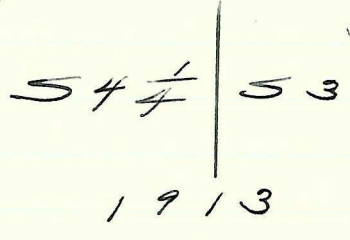 54 1/4 | 53
1913